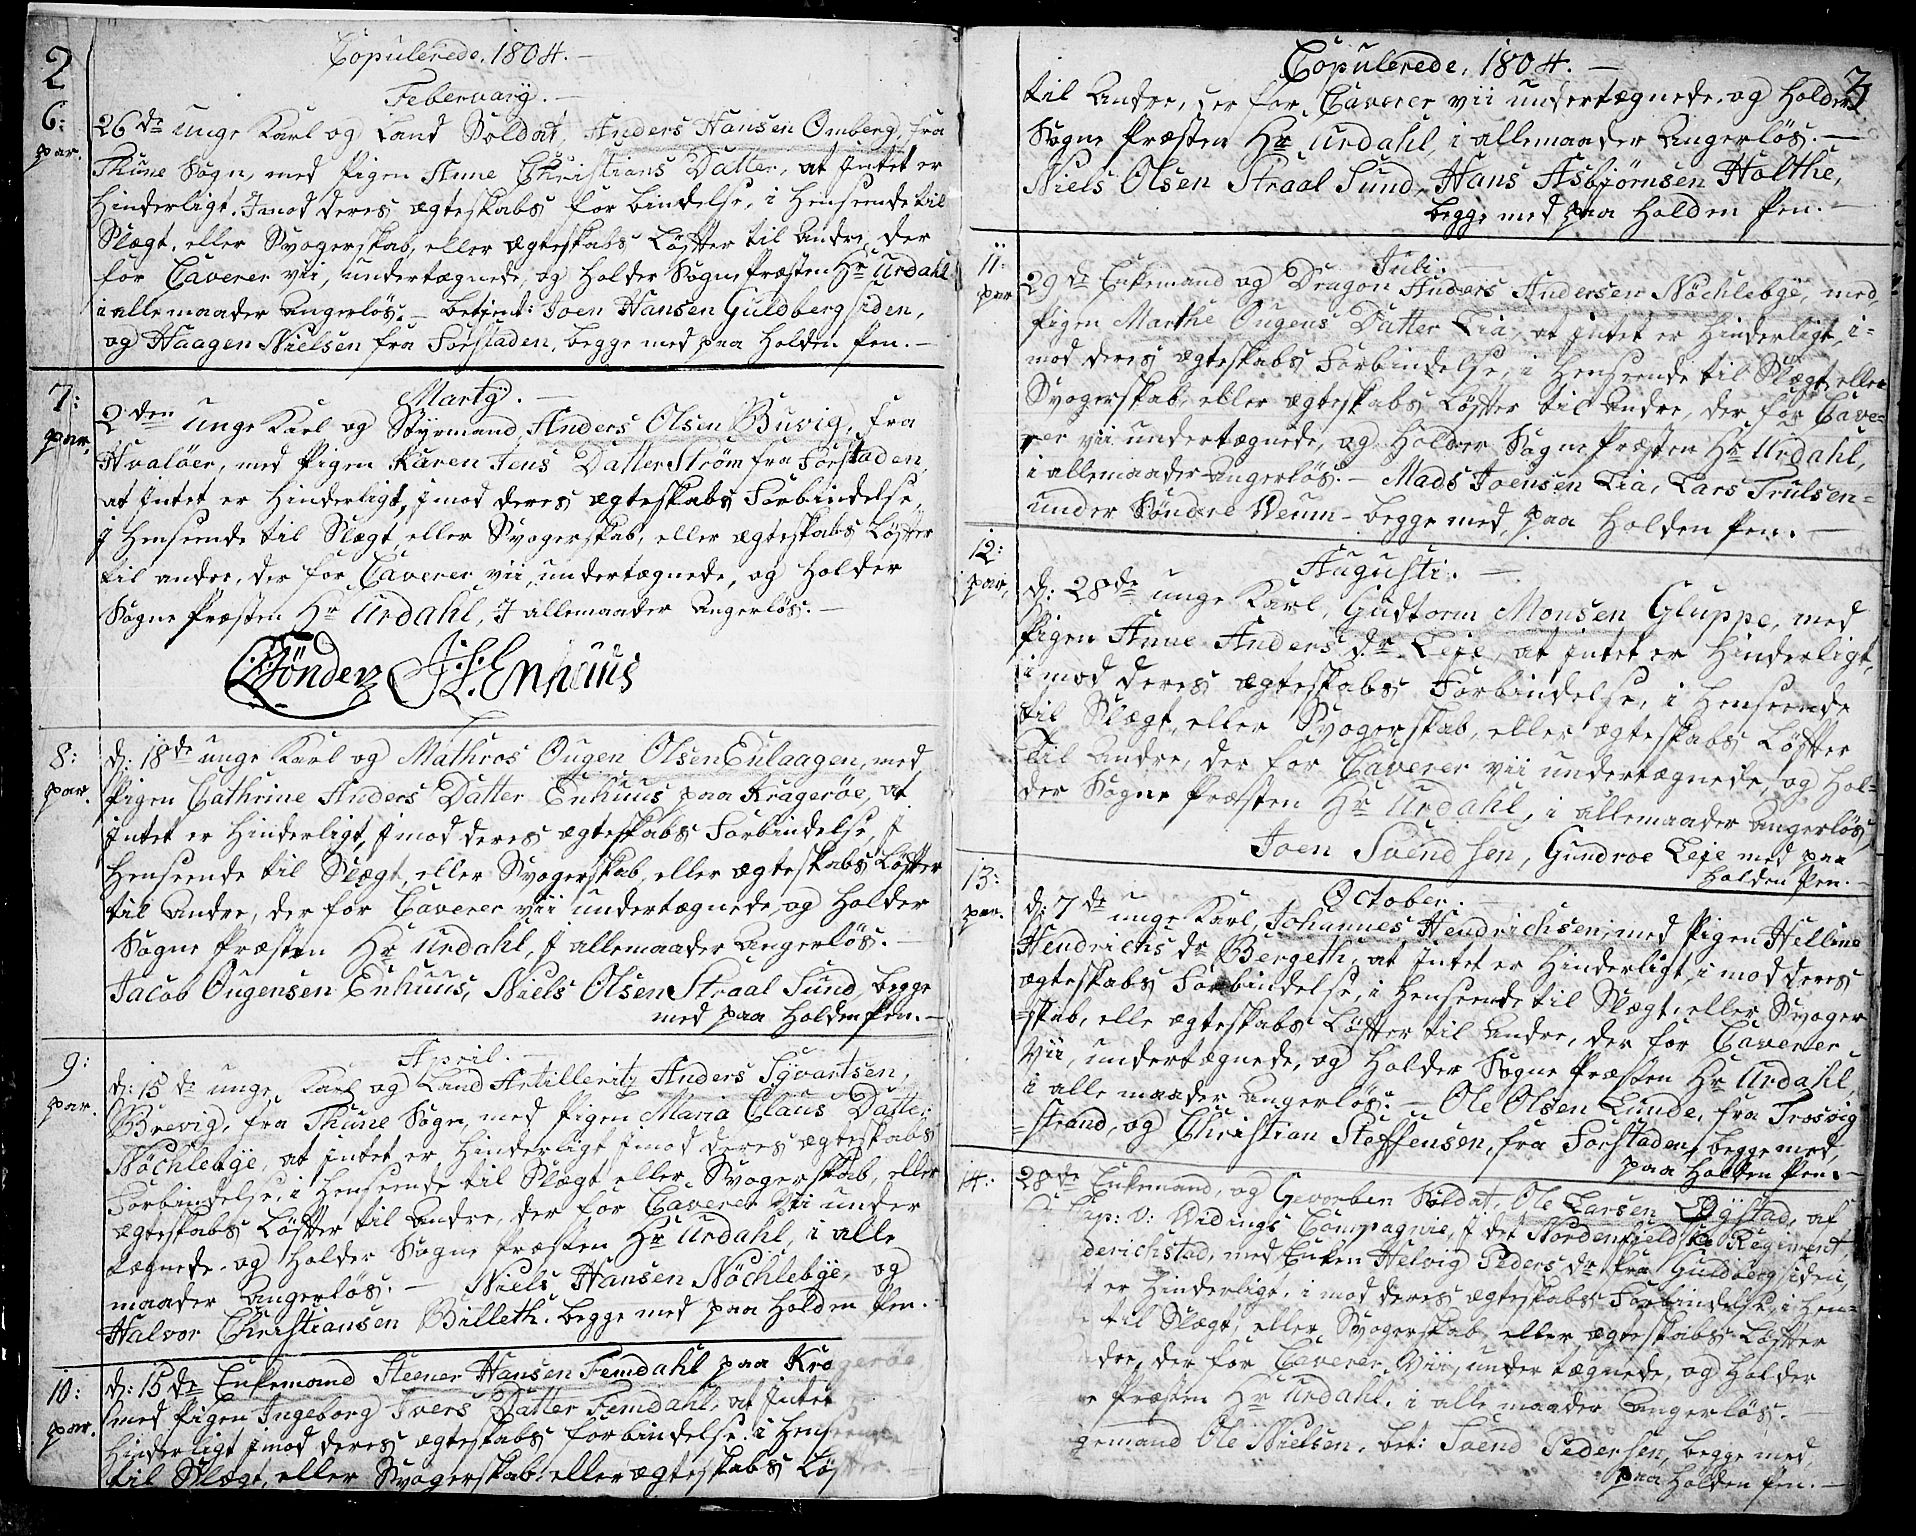 2
Copulerede. 1804. —
Feberuarÿ. —
6:
par.
26de unge Karl og Land Soldat, Anders Hansen Omberg, fra
Thune Sogn, med Pigen Anne Christians Datter, at Intet er
Hinderligt. Imod deres ægteskabs for bindelse, i Henseende til
Slægt, eller Svogerskab, eller ægteskabs Løfter til Andre, der
for Caverer vii, undertægnede, og Holder Sogne Præsten Hr Urdahl
i allemaader Angerløs. — betient: Joen Hansen Guldbergsiden,
og Haagen Nielsen fra Forstaden, begge med paa Holden Pen. —
Martÿ. —
7:
par.
2den unge Karl og Stÿrmand, Anders Olsen Buvig, fra
Hvaløer, med Pigen Karen Jens Datter Strøm fra Forstaden,
at Intet er Hinderligt, Imod deres ægteskabs Forbindelse,
I Henseende til Slægt eller Svogerskab, eller ægteskabs Løfter
til andre, der for Caverer vii, undertægnede, og Holder
Sogne Præsten Hr Urdahl, I allemaader Angerløs. —
Enhuus
8:
par.
d: 18de unge Karl og Mathros Ougen Olsen Enlaagen, med
Pigen Cathrine Anders Datter Enhuus paa Kragerøe, at
Intet er Hinderligt, Imod deres ægteskabs Forbindelse, I
Henseende til Slægt eller Svogerskab, eller ægteskabs Løfter
til Andre, der for Caverer vii undertægnede, og Holder
Sogne Præsten Hr Urdahl, I allemaader Angerløs. —
Jacob Ougensen Enhuus, Niels Olsen Straal Sund, begge
med paa Holden Pen. —
April. —
9:
par.
d: 15de unge Karl og Land Artilleritz Anders Sÿvartsen,
Brevig, fra Thune Sogn, med Pigen Maria Claus Datter
Nøchlebÿe, at Intet er Hinderligt Imod deres ægteskabs
Forbindelse, i Henseende til Slægt eller Svogerskab, eller
ægteskabs Løfter til Andre, der for Caverer Vii under
tægnede. og Holder Sogne Præsten Hr Urdahl, i alle
maader Angerløs. — Niels Hansen Nøchlebÿe, og
Halvor Christiansen Billeth. begge med paa Holden Pen.
10:
par.
d: 15de Enkemand Steener Hansen Femdahl paa Kragerøe,
med Pigen Ingeborg Ivers Datter Femdahl, at Intet
Hinderligt Imod deres ægteskabs forbindelse. i Henseende
til Slægt, eller Svogerskab, eller ægteskabs Løfter
3.
Copulerede. 1804. —
til Andre, der for Caverer vii undertægnede. og Holder
Sogne Præsten Hr Urdahl, i allemaader Angerløs. —
Niels Olsen Straal Sund, Hans Asbjørnsen Holthe,
begge med paa Holden Pen. —
Juli. —
11:
par
29de Enkemand og Dragon Anders Andersen Nøchlebÿe, med,
Pigen Marthe Ougens Datter Lia, at Intet er Hinderligt, i-
mod deres ægteskabs Forbindelse, i Henseende til Slægt, eller
Svogerskab, eller ægteskabs Løfter til Andre, der for Cave-
rer vii undertægnede, og Holder Sogne Præsten Hr Urdahl,
i allemaader Angerløs. — Mads Joensen Lia, Lars Trulsen-
under Søndre Veum — begge med, paa Holden Pen. —
Augusti. —
12:
par,
d: 28de unge Karl, Gudtorm Monsen Gluppe, med
Pigen Anne Anders dr. Leje, at Intet er Hinderligt,
imod deres ægteskabs Forbindelse, i Henseende
til Slægt, eller Svogerskab, eller ægteskabs Løfter
Til Andre, der for Caverer vii undertægnede, og Hol-
der Sogne Præsten Hr Urdahl, i allemaader Angerløs,
Joen Svendsen, Gundroe Leje med paa
Holden Pen. —
October. —
13:
par.
d: 7de unge Karl, Johannes Hendrichsen, med Pigen Helline
Hendrichs dr Bergeth, at Intet er Hinderligt, i mod deres
ægteskabs Forbindelse, i Henseende til Slægt, eller Svoger
-skab, elle ægteskabs Løfter til Andre, der for Caverer
Vii, undertægnede, og Holder Sogne Præsten Hr Urdahl,
i alle maader Angerløs. — Ole Olsen Lunde, fra Trosvig
-strand, og Christian Steffensen, fra Forstaden, begge med,
paa Holden Pen. —
14:
28de Enkemand, og Gevorben Soldat, Ole Larsen Bÿstad, af
Cap: v: Widings Compagnie, I det Nordenfieldske Regiment
derichstad, med Enken Helvig Peders dr. fra Guldbergsiden,
t er Hinderligt, i mod deres ægteskabs Forbindelse, i Hen-
til Slægt, eller Svogerskab, eller ægteskabs Løfter
ndre, der for Caverer Vii, under tægnede, og Holder
e Præsten Hr Urdahl. i alle maader Angerløs. —
gemand Ole Nielsen, bet: Svend Pedersen, begge med,
paa Holden Pen. —